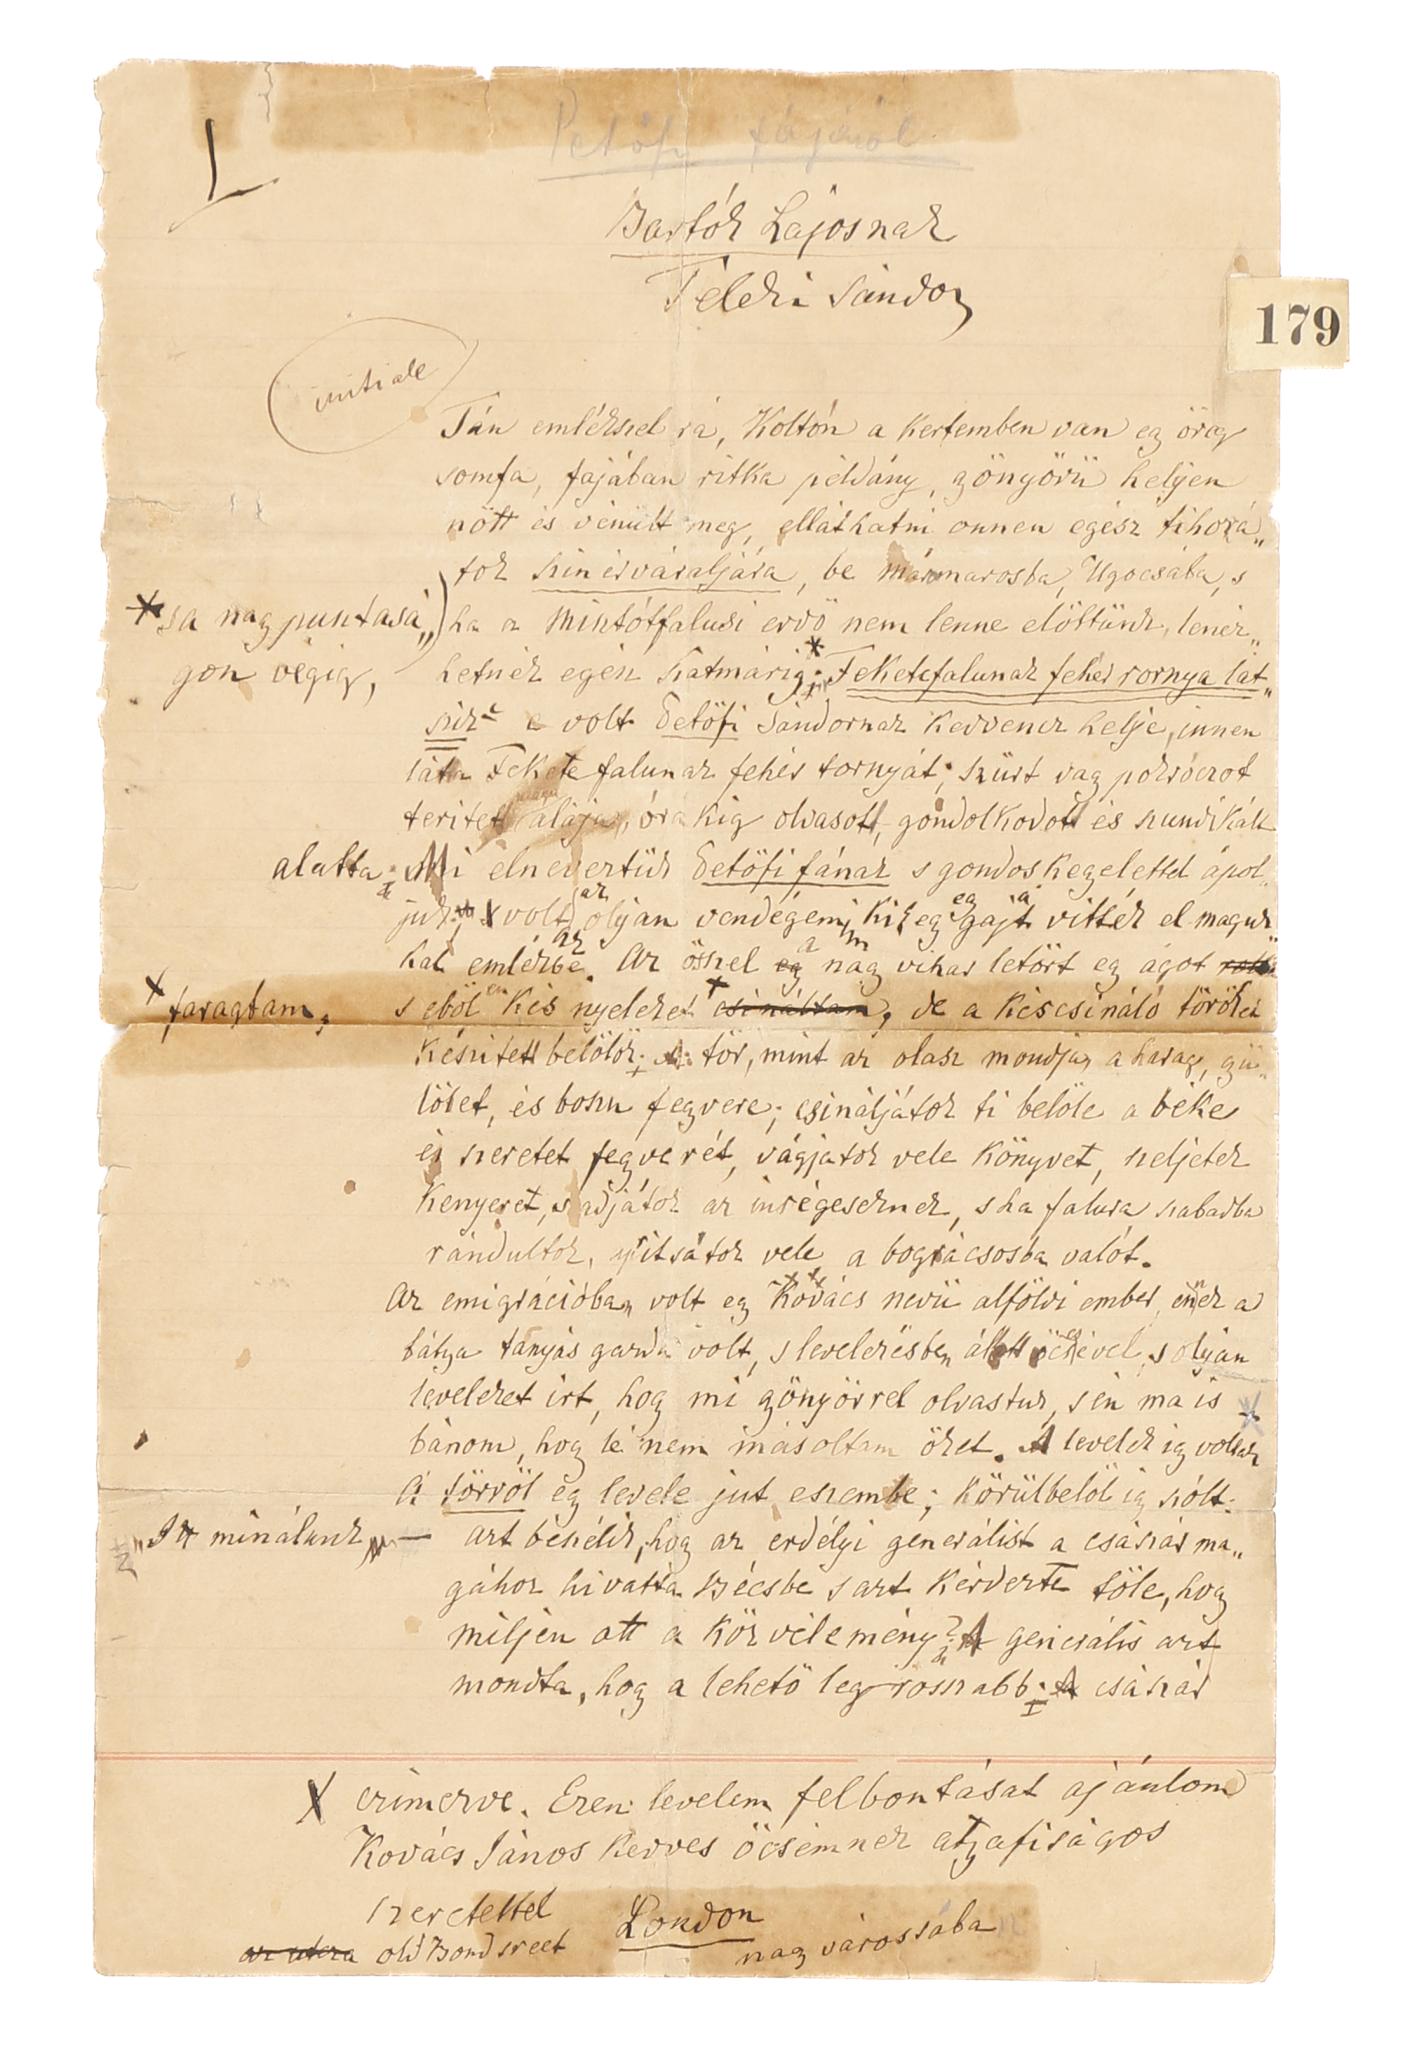 Petőfi fájáról
Bartók Lajosnak
Teleki Sándor
179
initiale
Tán emlékszel rá, Koltón a kertemben van eg öreg
somfa, fajában ritka példány, gönyörü heljen
nőtt és vénült meg, elláthatni onnen egész Tihorá„
tok szinérváraljára, be mármarosba, Ugocsába, s
* sa nag pusztasá„
gon végig,
ha a Misztótfalusi erdő nem lenne előttünk, lenéz„
hetnék egész Szatmárig. * Feketefalunak fehér tornya lát„
szik e volt Petőfi Sándornak kedvencz helje, innen
láta Feketefalunak fehér tornyát; szürt vag pokróczot
terített maga alája, órákig olvasott, gondolkodott és szundikált
alatta. Mi elneveztük Petőfi fának s gondos kegelettel ápol„
juk; volt az olyan vendégem, ki eg eg gajat vittek el maguk„
kal emlékbe. Az össel eg nag vihar letört eg ágot
s eböl en kis nyeleket * csináltam, de a késcsináló töröket
x faragtam;
készitett belölök; tör, mint az olasz mondja, a harag, gü„
lölet, és boszu fegvere; csináljátok ti belöle a béke
és szeretet fegverét, vágjatok vele könyvet, szeljetek
kenyeret, s adjátok az inségeseknek, s ha falura szabadba
rándultok, nyitsátok vele a bográcsosba valót.
Az emigrációban volt eg Kovács nevü alföldi ember, ennek a
bátya tanyás gazda volt, s levelezésben állott öcsével, s olyan
leveleket irt, hog mi gönyörrel olvastuk, s én ma is
bánom, hog lé nem másoltam öket. A levelek ig voltak
A törröl eg levele jut eszembe; körülbelöl ig szólt.
„Itt minálunk — azt beszélik, hog az erdélyi generálist a császár ma„
gához hivatta Bécsbe s azt kérdezte töle, hog
miljen ott a közvélemény? A generális azt
mondta, hog a lehető leg rosszabb. A császár
X czimezve. Ezen levelem felbontását ajánlom
Kovács János kedves öcsémnek atyafiságos
szeretettel London
az utcza old Bond sreet nag városába